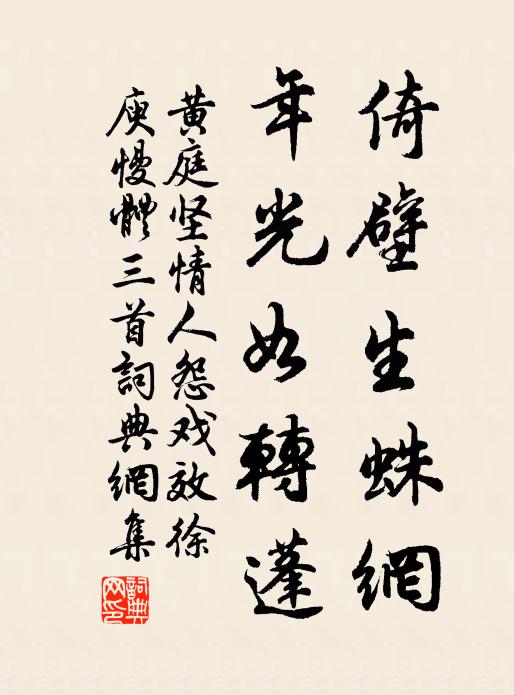 倚壁生蛛網
年光如轉蓬
黄庭坚情人怨戏效徐
庾慢體三首詞典網集
詞典網印